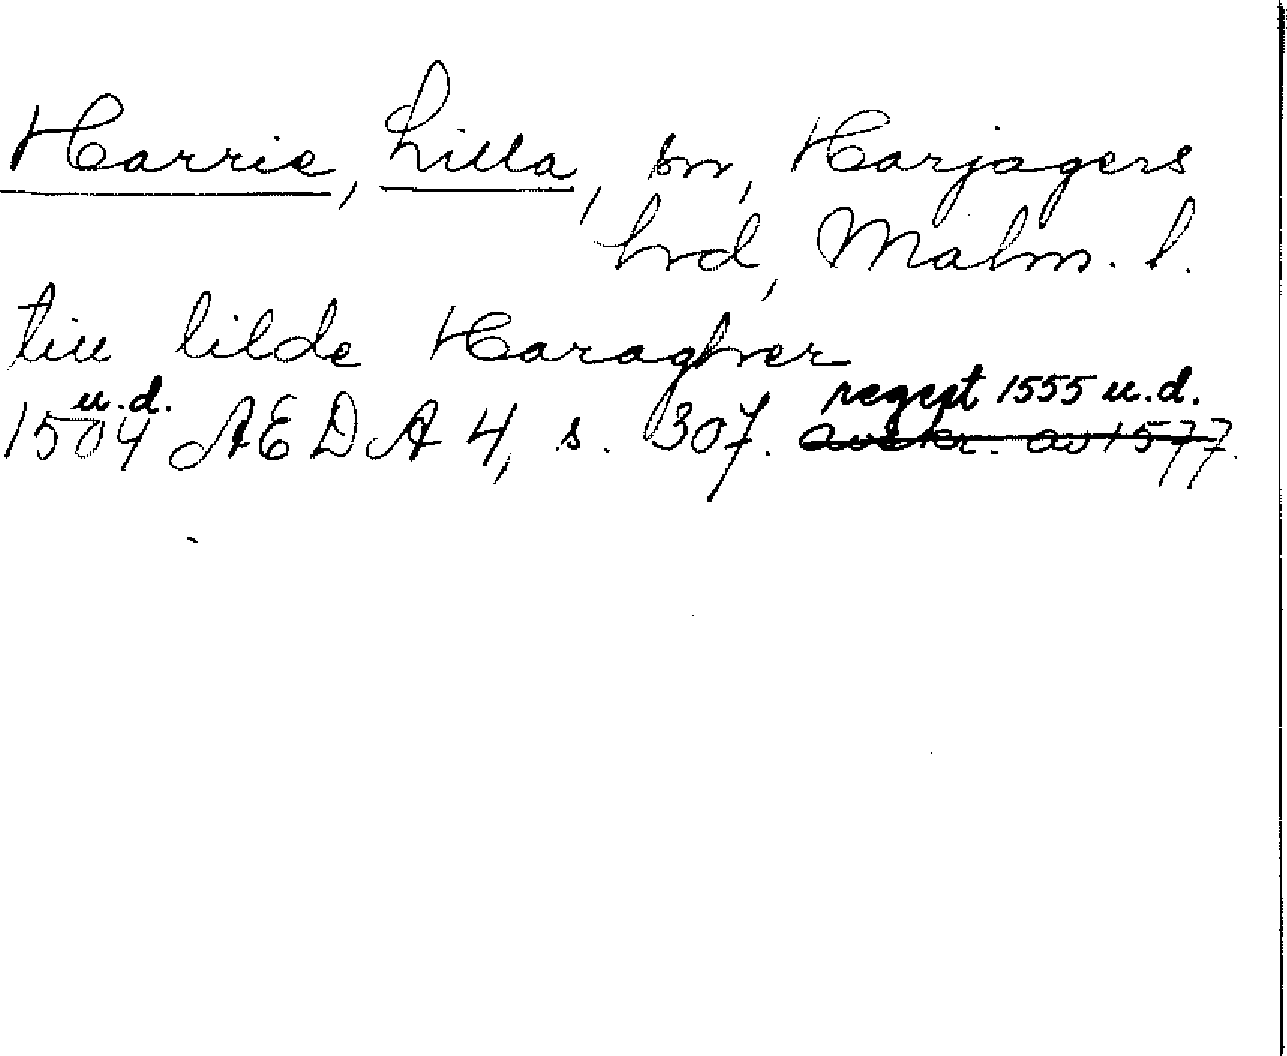 Harrie, Lilla, sn, Harjagers
hrd, Malm. l.
till lilde Haragher
regest 1555 u.d.
u.d.
1504 AEDA 4, s. 307. avskr. av 1577.